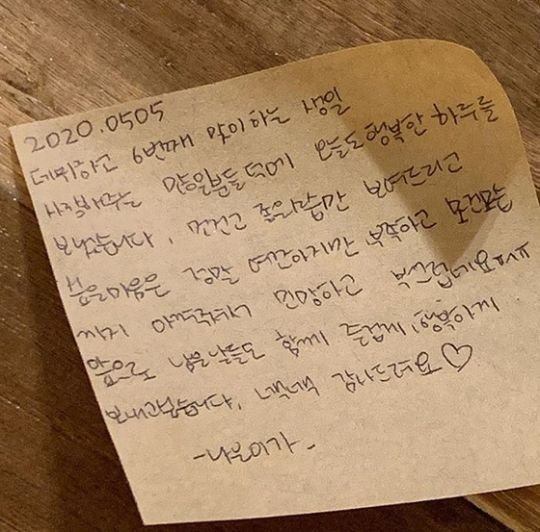 2020.0505
데뷔하고 6번째 맞이하는 생일
시작해주는 많은분들덕에 오늘도 행복한 하루를
보냈습니다. 멋있고 좋은모습만 보여드리고
싶은마음은 정말 여전하지만 부족하고 모난모습
까지 아껴주셔서 민망하고 부끄럽네요ㅠㅠ
앞으로 남은날들도 함께 즐겁게, 행복하게
보내고싶습니다. 넥넥 감사드려요♡
-나은이가-